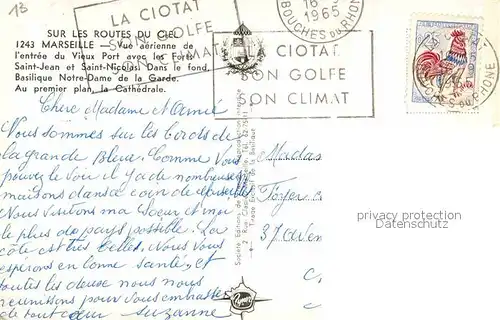 13
LA CIOTAT
SON GOLFE
SON CLIMAT
16
1965
BOUCHES DU RHONE
SUR LES ROUTES DU CIEL
1243 MARSEILLE — Vue aérienne de
l'entrée du Vieux Port avec les Forts
Saint-Jean et Saint-Nicolas. Dans le fond,
Basilique Notre-Dame de la Garde.
Au premier plan, la Cathédrale.
LA CIOTAT
SON GOLFE
SON CLIMAT
0,25
Chère Madame Mémé
Nous sommes sur les bords de
la grande Bleue. Comme vous
pouvez le voir il y a de nombreuses
maisons dans ce coin de Marseille
Nous visitons ma soeur et moi
le plus de pays possible. La
côte est très belle. Nous vous
espérons en bonne santé, et
toutes les deux nous nous
réunissons pour vous embrasser
de tout coeur Suzanne
Madam
Foyer
37 aven
privacy protection
watermark